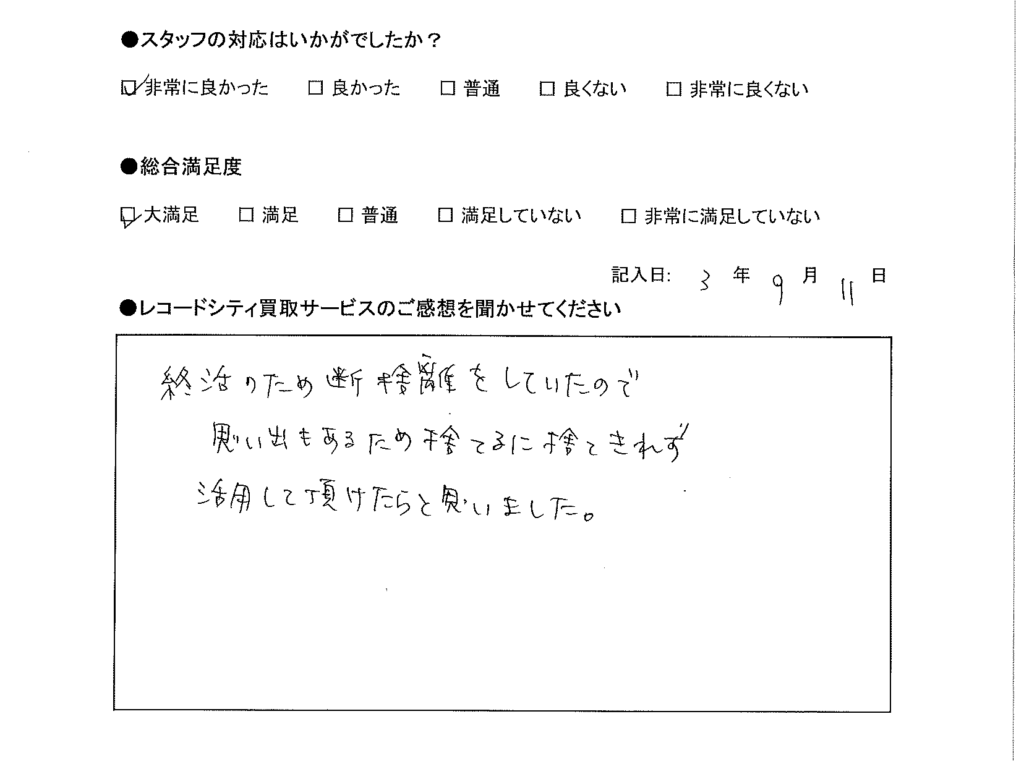 ●スタッフの対応はいかがでしたか？
☑非常に良かった □良かった □普通 □良くない □非常に良くない
●総合満足度
☑大満足 □満足 □普通 □満足していない □非常に満足していない
記入日: 3年9月11日
●レコードシティ買取サービスのご感想を聞かせてください
終活のため断捨離をしていたので
思い出もあるため捨てるに捨てきれず
活用して頂けたらと思いました。